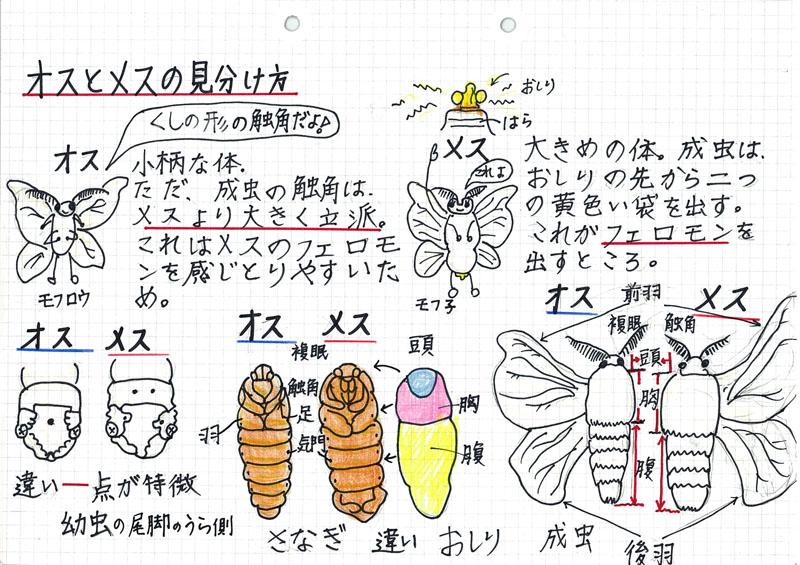 オスとメスの見分け方
くしの形の触角だよ!
オス
小柄な体.
ただ、成虫の触角は、
メスより大きく立派。
これはメスのフェロモ
ンを感じとりやすいた
め。
モフロウ
おしり
はら
メス
これよ
モフ子
大きめの体。成虫は、
おしりの先から二つ
の黄色い袋を出す。
これがフェロモンを
出すところ。
オス
メス
違い 点が特徴
幼虫の尾脚のうら側
オス
メス
複眼
触角
足
気門
羽
頭
胸
腹
さなぎ 違い おしり
オス
メス
前羽
複眼
触角
頭
胸
腹
成虫
後羽